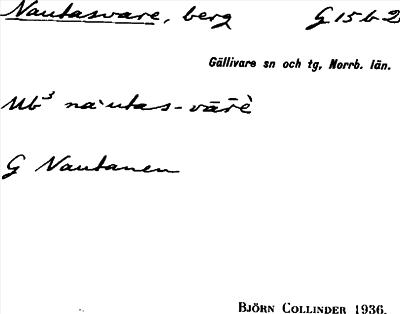 Nautasvare, berg G 15 b 2
Gällivare sn och tg, Norrb. län.
Ub³ na·utas-vārè
G Nautanen
BJÖRN COLLINDER 1936.